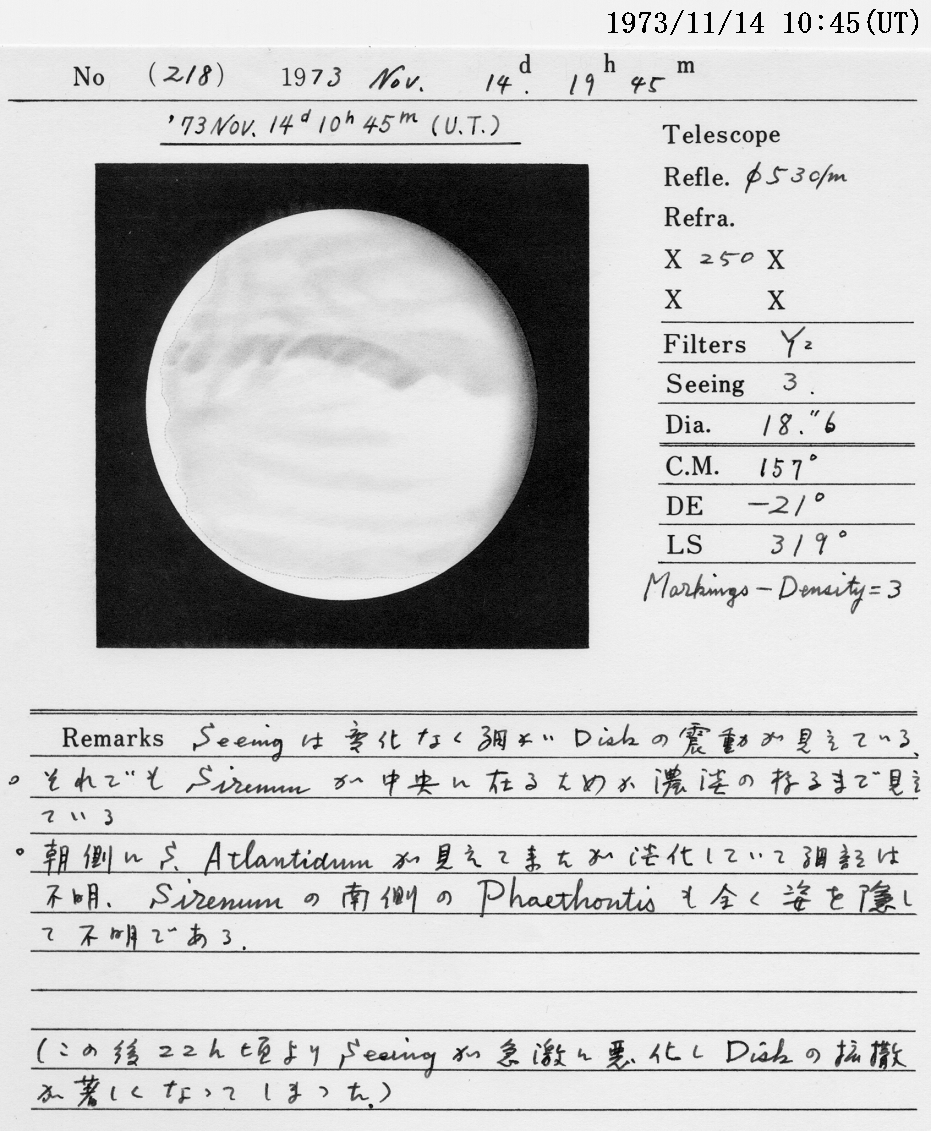 1973/11/14 10:45(UT)
No (218) 1973 Nov. 14d. 19h 45m
'73 Nov. 14d 10h 45m (U.T.)
Telescope
Refle. φ530/m
Refra.
X 250 X
X X
Filters Y2
Seeing 3.
Dia. 18."6
C.M. 157°
DE -21°
LS 319°
Markings - Density = 3
Remarks Seeingは変化なく細かいDiskの震動が見えている、
○ それでも Sirenum が中央に在るためか濃淡の存るまで見え
ている
○ 朝側に S. Atlantidum が見えて来たが淡化していて詳細は
不明、Sirenumの南側のPhaethontisも全く姿を隠し
て不明である.
(この後22h頃よりSeeingが急激に悪化しDiskの拡散
が著しくなってしまった.)